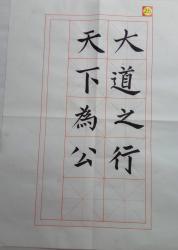 大道之行
天下為公